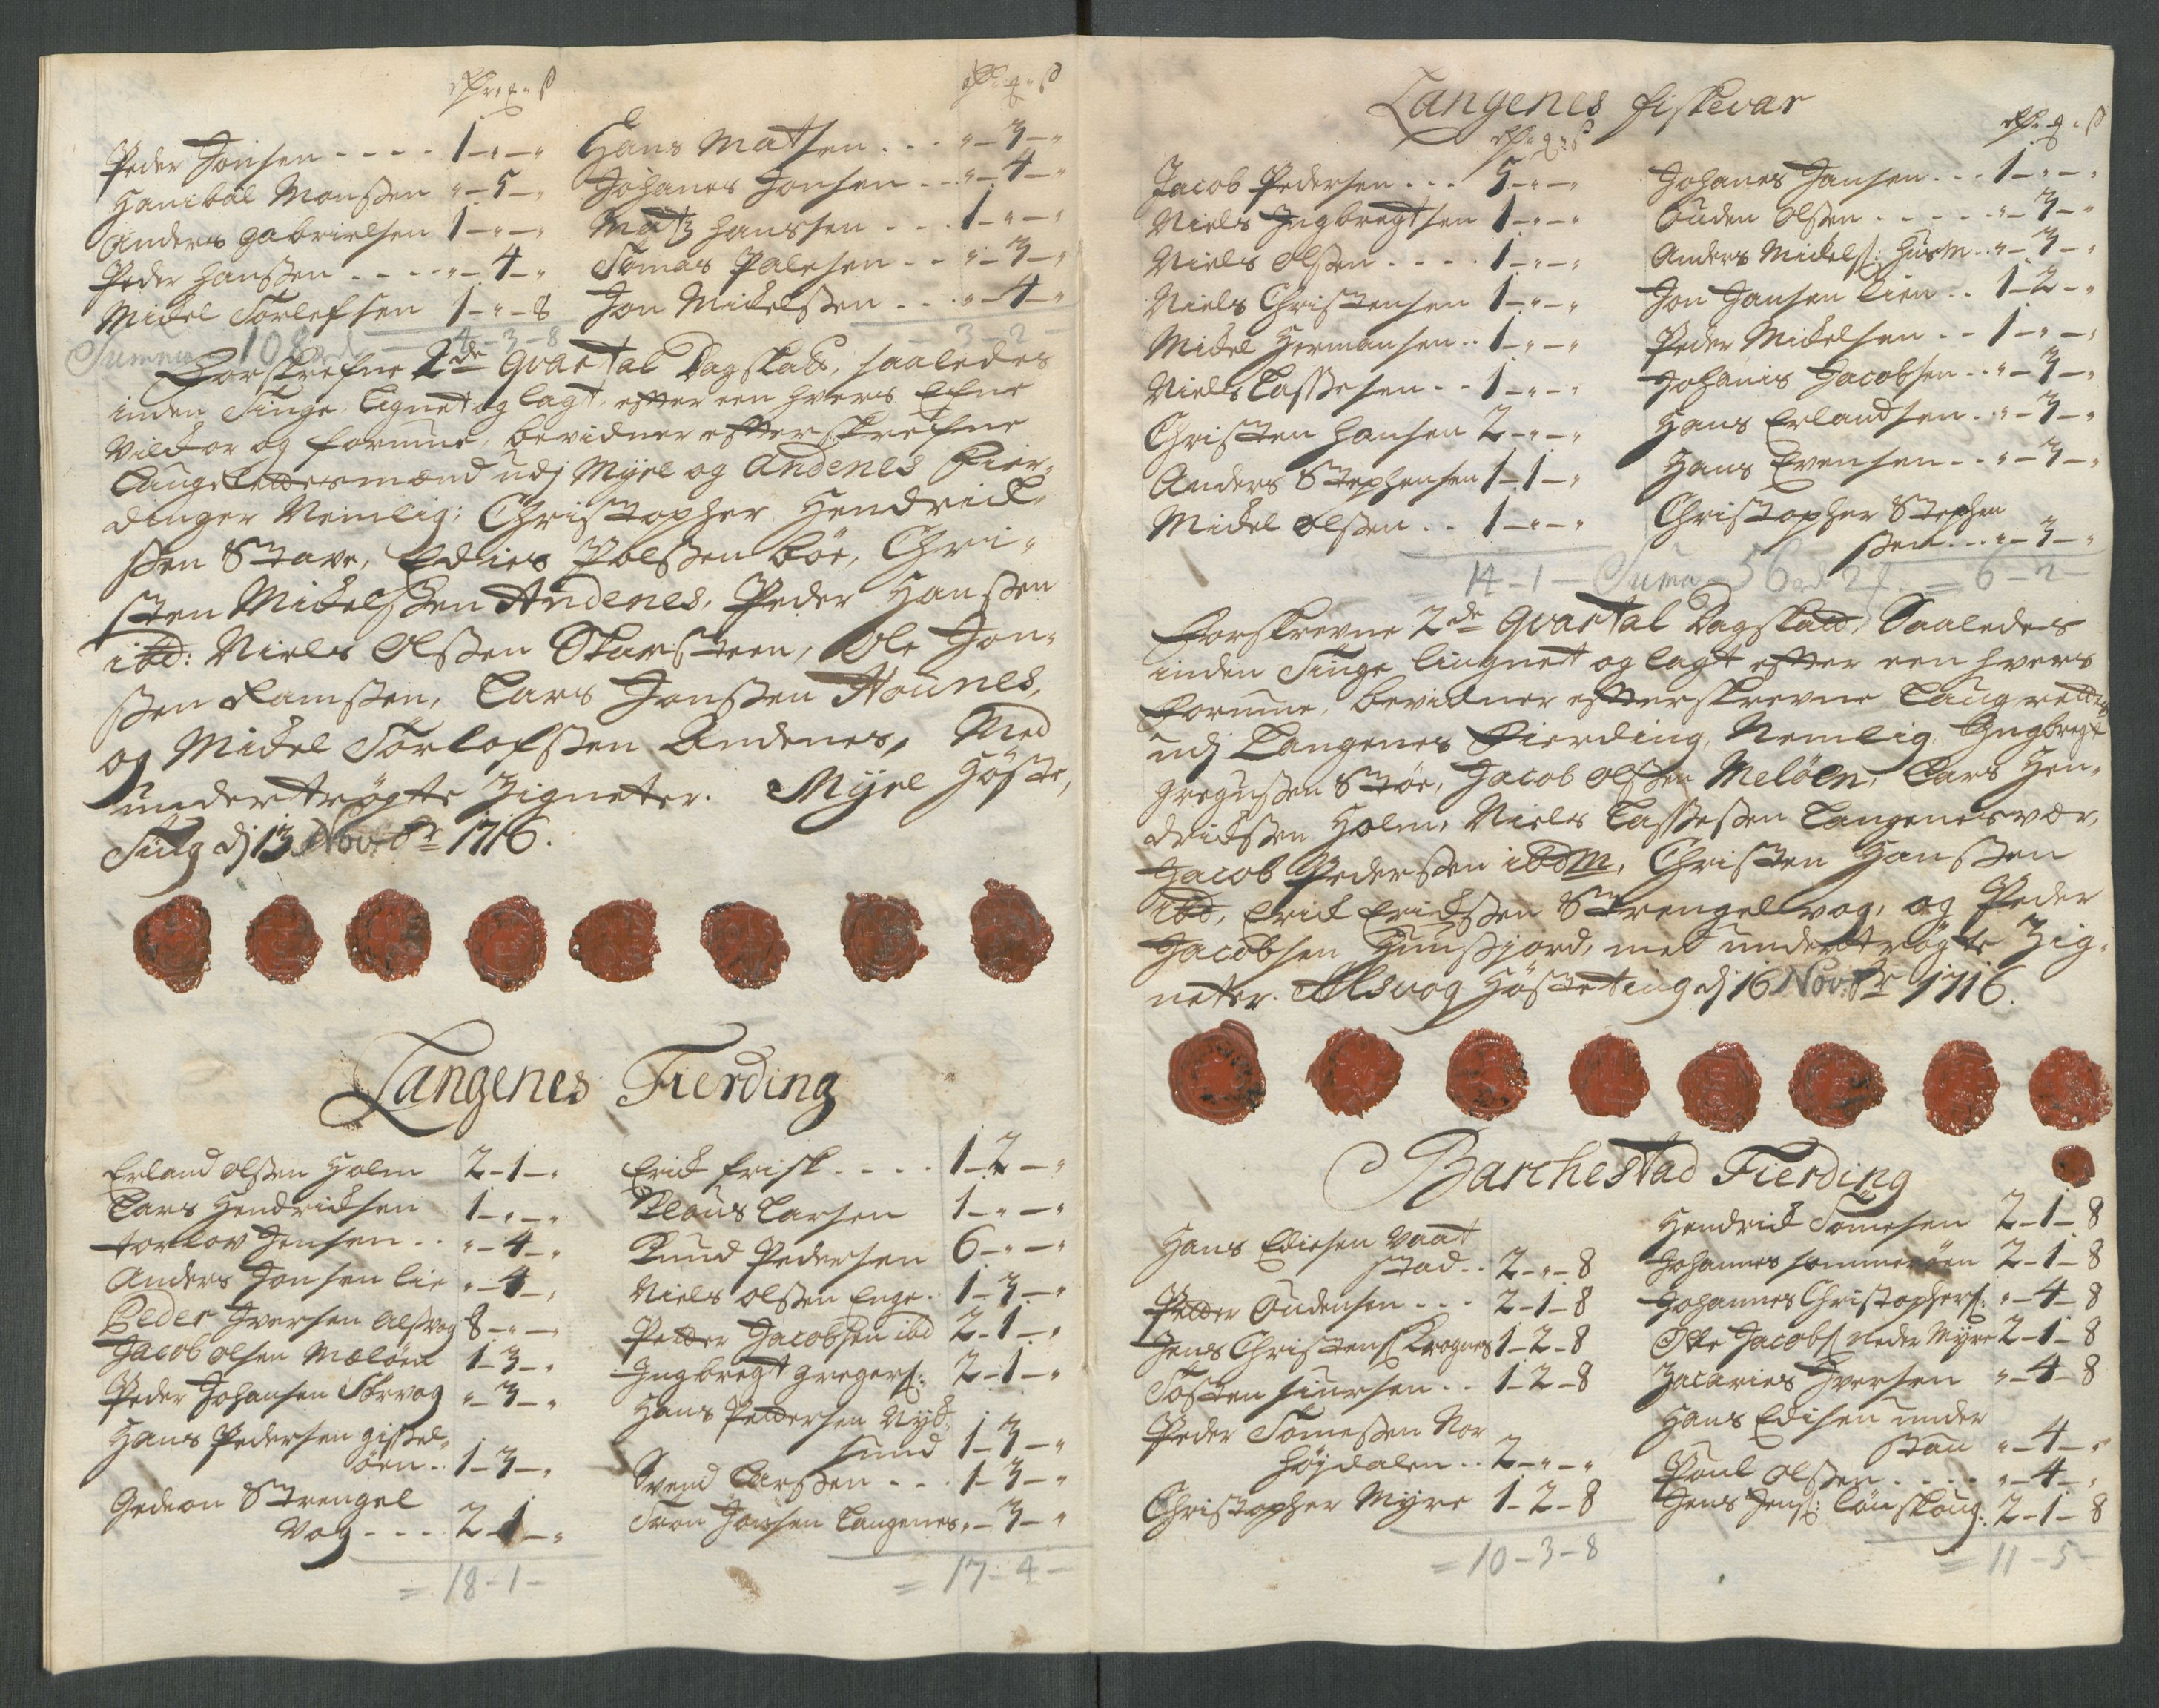 Peder Jonsen - - - - 1 - " - "
Hanibal Monssen " - 5 - "
Anders Gabrielsen 1 - " - "
Peder Hanssen - - - - " - 4 - "
Mickel Torlefsen 1 - " - 8
4 - 3 - 8
Hans Matsen . . . " - 3 - "
Johanes Jonsen . . . " - 4 - "
Matz Hanssen . . . 1 - " - "
Tomas Palesen . . " - 3 - "
Jon Mickelssen . . . " - 4 - "
3 - 2 -
Summa 108
Forskrefne 2de Qvartal Dagskatt, saaledes
inden Tinge lignet og lagt, efter een hvers Efne
Vilckor og formue, bevidner efterskrefne
Laugrettesmænd udj Myre og Andenes Fier-
dinger Nemlig: Christopher Hendrick-
ssen Stave, Edies Polssen Böe, Chri-
sten Mickelssen Andenes, Peder Hanssen
ibd: Niels Olssen Skarsteen, Ole Jon-
ssen Ramssen, Lars Jonssen Hounes,
og Mickel Torlofssen Andenes, Med
undertrögte Zigneter. Myre Höste,
Ting dj 13 Novbr 1716.
Langenes Fierding
Erland Olssen Holm 2 - 1 - "
Lars Hendricksen 1 - " - "
Torlov Jensen . . " - 4 - "
Anders Jonsen Lie " - 4 - "
Peder Iversen Alsvog 8 - " - "
Jacob Olsen Mælöen 1 - 3 - "
Peder Johansen Störvog " - 3 - "
Hans Pedersen Gissel-
öen . . 1 - 3 - "
Gedeon Strengel
Vog - - - - 2 - 1 - "
= 18 - 1 -
Erick Frisk . . . . 1 - 2 - "
Claus Larsen 1 - " - "
Knud Pedersen 6 - " - "
Niels Olssen Enge . 1 - 3 - "
Petter Jacobsen ibd 2 - 1 - "
Ingbregt Gregers: 2 - 1 - "
Hans Pettersen Nyk
sund 1 - 3 - "
Svend Larssen - - . 1 - 3 - "
Tron Jonsen Langenes " - 3 - "
= 17 - 4 -
Langenes fiskevær
Jacob Pedersen . . . 5 - " - "
Niels Ingbregtsen 1 - " - "
Niels Olssen - - - - 1 - " - "
Niels Christensen 1 - " - "
Mickel Hermansen . . 1 - " - "
Niels Lassesen - - 1 - " - "
Christen Hansen 2 - " - "
Anders Stephensen 1 - 1 - "
Mickel Olssen . . 1 - " - "
14 - 1 -
Johanes Jansen . . . 1 - " - "
Ouden Olssen - - - - - " - 3 - "
Anders Mickels: Husm . . " - 3 - "
Jon Jansen Lien . . 1 - 2 - "
Peder Mickelsen - - 1 - " - "
Johanis Jacobsen . . " - 3 - "
Hans Erlandsen . . " - 3 - "
Hans Evensen . . " - 3 - "
Christopher Stephen
ssen . . . " - 3 - "
Suma 56 rd 2 = 6 - 2 -
Forskrevne 2de Qvartal Dagskatt, Saaledes
inden Tinge lingnet og lagt efter een hvers
Formue, bevidner efterskrevne Laugrettes
udj Langenes Fierding, Nemlig, Ingbregt
Gregussen Stöe, Jacob Olssen Melöen, Lars Hen-
drickssen Holm, Niels Lassessen Langenesvær,
Jacob Pederssen ibdm, Christen Hanssen
ibd, Erick Erickssen Strengelvog, og Peder
Jacobsen Tunsfjord, med undertrögte Zig-
neter. Alsvog Hösteting dj 16 Novbr 1716.
Barchestad Fierding
Hans Ediesen Vaat
stad . . 2 - " - 8
Petter Oudensen - - - 2 - 1 - 8
Jens Christens: Krognes 1 - 2 - 8
Tosten Siursen . . 1 - 2 - 8
Peder Tomessen Nor
höjdalen . . 2 - " - "
Christopher Myre 1 - 2 - 8
= 10 - 3 - 8
Hendrick Tomesen 2 - 1 - 8
Johannes Sommeröen 2 - 1 - 8
Johannes Christophers: " - 4 - 8
Otte Jacobs: Neder Myre 2 - 1 - 8
Zacaries Iversen " - 4 - 8
Hans Edisen under
stau " - 4 - "
Poul Olssen . . . . " - 4 - "
Jens Jens: Lönskoug . 2 - 1 - 8
= 11 - 5 -